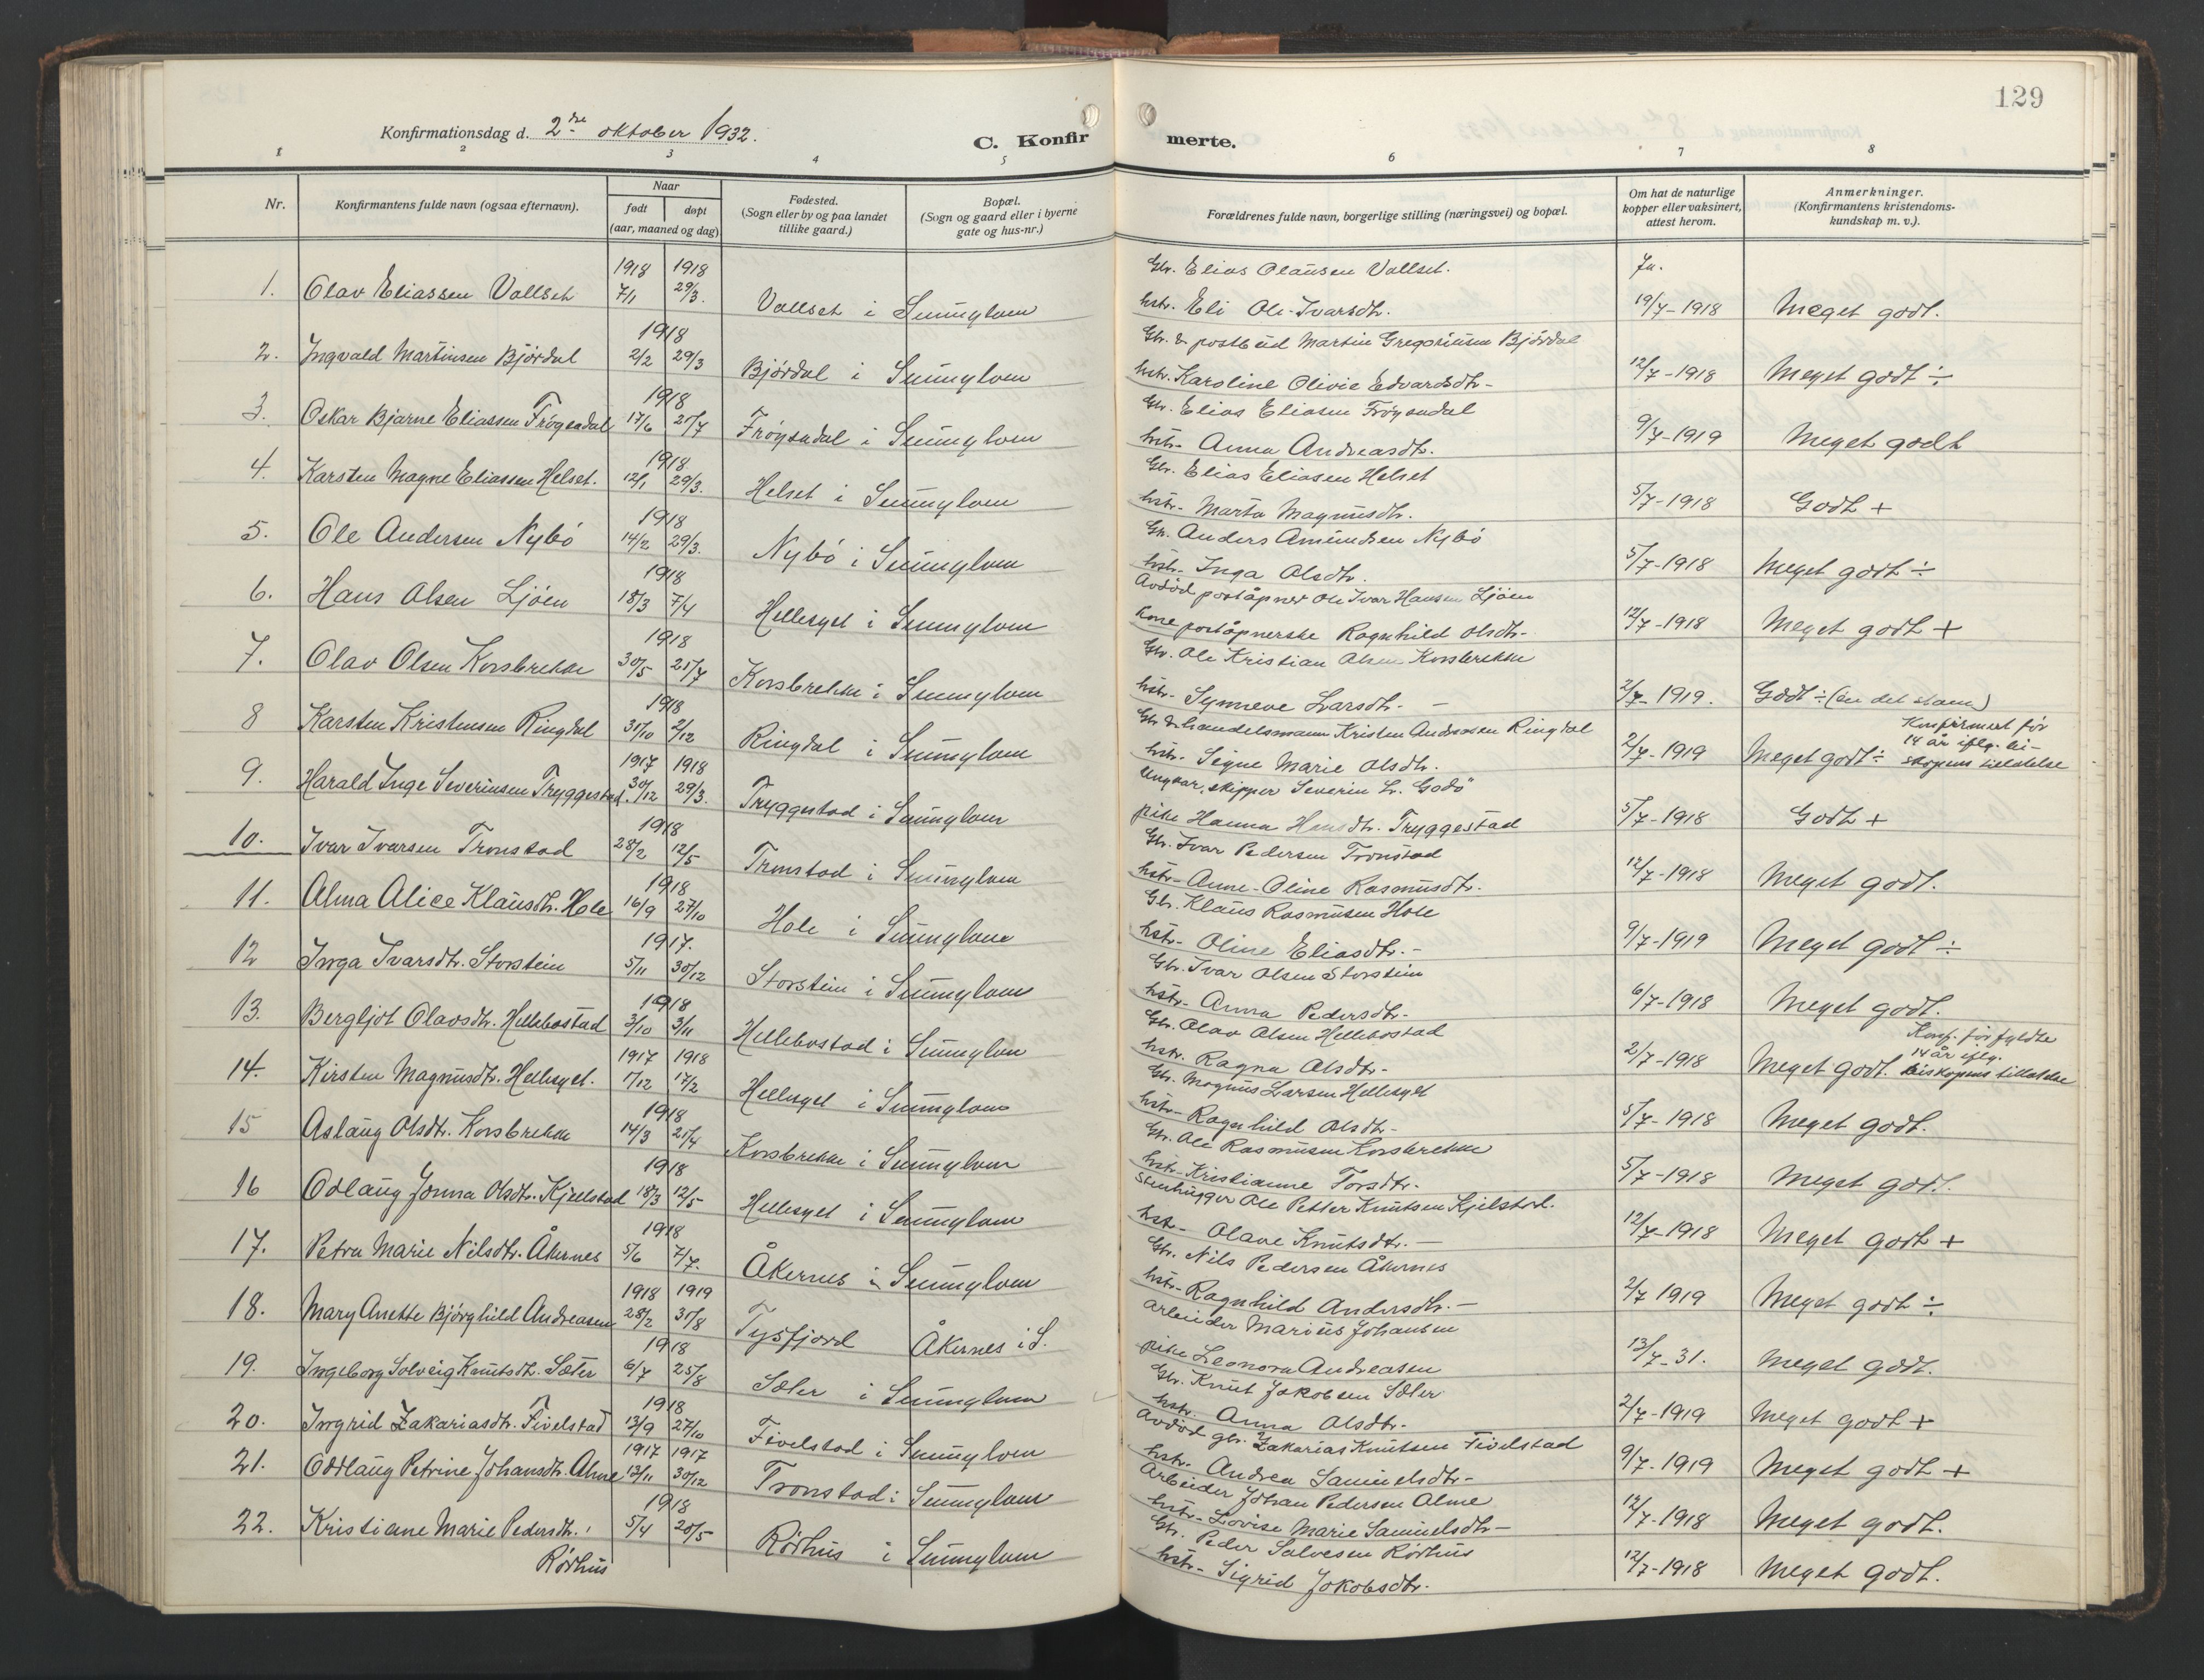 129
Konfirmationsdag d. 2dre oktober 1932.
C. Konfir merte.
1 2 3 4 5 6 7 8
Nr.
Konfirmantens fulde navn (ogsaa efternavn).
Naar
født døpt
(aar, maaned og dag)
Fødested.
(Sogn eller by og paa landet
tillike gaard.)
Bopæl.
(Sogn og gaard eller i byerne
gate og hus-nr.)
Forældrenes fulde navn, borgerlige stilling (næringsvei) og bopæl.
Om hat de naturlige
kopper eller vaksinert,
attest herom.
Anmerkninger.
(Konfirmantens kristendoms-
kundskap m. v.).
1918 1918 Gbr. Elias Olausen Vollset. Ja.
1. Olav Eliassen Vollset 7/1 29/3. Vollset i Sunnylven hstr. Eli Ole-Ivarsdtr. 19/7-1918 Meget godt.
1918 Gbr. & postbud Martin Gregoriusen Bjørdal
2. Ingvald Martinsen Bjørdal 2/2 29/3 Bjørdal i Sunnylven hstr. Karoline Olivie Edvardsdtr- 12/7-1918 Meget godt ÷
1918 Gbr. Elias Eliasen Frøysadal
3. Oskar Bjarne Eliassen Frøysadal 17/6 21/7 Frøysadal i Sunnylven hstr- Anna Andreasdtr. 9/7-1919 Meget godt
1918. Gbr. Elias Eliasen Helset
4. Karsten Magne Eliassen Helset. 12/1 29/3. Helset i Sunnylven hstr- Marta Magnusdtr. 5/7-1918 Godt +
1918 Gbr. Anders Amundsen Nybø
5. Ole Andersen Nybø 14/2 29/3. Nybø i Sunnylven hstr- Inga Olsdtr. 5/7-1918 Meget godt ÷
1918 Avdød poståpner Ole Ivar Hansen Ljøen
6. Hans Olsen Ljøen 18/3 7/4 Hellesylt i Sunnylven Kone poståpnerske Ragnhild Olsdtr- 12/7-1918 Meget godt +
1918 Gbr. Ole Kristian Olsen Korsbrekke
7. Olav Olsen Korsbrekke 30/5 21/7 Korsbrekke i Sunnylven hstr- Synneve Larsdtr. - 2/7-1919. Godt ÷
1918 Gbr & handelsmann Kristen Andreasen Ringdal Konfirmert før
14 år iflg. bi-
8 Karsten Kristensen Ringdal 31/10 2/12 Ringdal i Sunnylven hstr. Signe Marie Olsdtr. 2/7-1919 Meget godt ÷ skopens tillatelse
1917 1918 Ungkar, skipper Severin L. Godø
9. Harald Inge Severinsen Tryggestad. 30/12 29/3. Tryggestad i Sunnylven pike Hanna Hansdtr. Tryggestad 5/7-1918 Godt +
1918 Gbr. Ivar Pedersen Tronstad
10. Ivar Ivarsen Tronstad 28/2 12/5 Tronstad i Sunnylven hstr- Anne-Oline Rasmusdtr. 12/7-1918 Meget godt.
1918 Gbr. Klaus Rasmusen Hole
11. Alma Alice Klausdtr. Hole 16/9 27/10 Hole i Sunnylven hstr- Oline Eliasdtr.- 9/7-1919 Meget godt ÷
1917. Gbr. Ivar Olsen Storstein
12 Inga Ivarsdtr. Storstein 5/11 30/12 Storstein i Sunnylven hstr- Anna Pedersdtr- 6/7-1918 Meget godt.
1918 Gbr. Olav Olsen Hellebostad Konf. før fyldte
14 år iflg.
13. Bergljot Olavsdtr. Hellebostad 3/10 3/11 Hellebostad i Sunnylven hstr. Ragna Olsdtr- 2/7-1918 Meget godt. biskopens tillatelse
1917 1918 Gbr. Magnus Larsen Hellesylt
14. Kirsten Magnusdtr. Hellesylt. 1/12 17/2 Hellesylt i Sunnylven hstr- Ragnhild Olsdtr- 5/7-1918 Meget godt.
1918 Gbr. Ole Rasmusen Korsbrekke
15 Aslaug Olsdtr. Korsbrekke 14/3 21/4 Korsbrekke i Sunnylven hstr- Kristianne Torsdtr. 5/7-1918 Meget godt.
1918 Stenhugger Ole Petter Knutsen Kjelstad.
16 Odlaug Jonna Olsdtr. Kjellstad 18/3 12/5 Hellesylt i Sunnylven hstr- Olave Knutsdtr.- 12/7-1918 Meget godt +
1918 Gbr. Nils Pedersen Åkernes
17. Petra Marie Nilsdtr. Åkernes 5/6 7/7. Åkernes i Sunnylven hstr- Ragnhild Andersdtr.- 2/7 1919 Meget godt ÷
1918 1919 arbeider Marius Johansen
18. Mary Anette Bjørghild Andreasen 28/2 31/8 Tysfjord Åkernes i S. pike Leonora Andreasen 13/7-31. Meget godt.
1918 Gbr. Knut Jakobsen Sæter
19. Ingeborg Solveig Knutsdtr. Sæter 6/7 25/8 Sæter i Sunnylven hstr. Anna Olsdtr. 2/7-1919 Meget godt +
1918 Avdød gbr. Zakarias Knutsen Fivelstad
20. Ingrid Zakariasdtr. Fivelstad 13/9 27/10 Fivelstad i Sunnylven hstr. Andrea Samuelsdtr- 9/7-1919 Meget godt +
1917 1917 Arbeider Johan Pedersen Alme
21. Oddlaug Petrine Johansdtr. Alme 13/11 30/12 Tronstad i Sunnylven hstr- Lovise Marie Samuelsdtr- 12/7-1918 Meget godt.
1918 Gbr. Peder Salvesen Rødhus
22. Kristiane Marie Pedersdtr. 5/4 20/5 Rødhus i Sunnylven hstr- Sigrid Jakobsdtr. 12/7-1918 Meget godt.
Rødhus